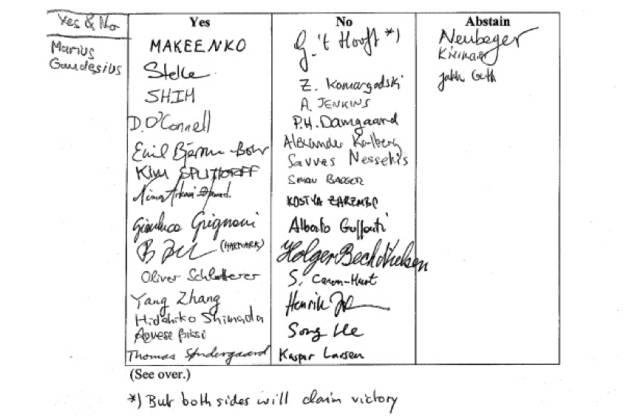 Yes & No
Yes
No
Abstain
Marius
Gaudesius
MAKEENKO
Stelle
SHIH
D. O'Connell
Emil Bjerrum-Bohr
KIM SPLITTORFF
Nima Arkani-Hamed
Gianluca Grignani
(HARTMARK)
Oliver Schlotterer
Yang Zhang
Hidehiko Shimada
Agnese Bissi
Thomas Søndergaard
G. 't Hooft *)
Z. Komargodski
A. JENKINS
P.H. Damgaard
Alexander Karlberg
Savvas Nesseris
SIMON BADGER
KOSTYA ZAREMBO
Alberto Guffanti
Holger Bech Nielsen
S. Caron-Huot
Henrik
Song He
Kasper Larsen
Neuberger
(See over.)
*) But both sides will claim victory